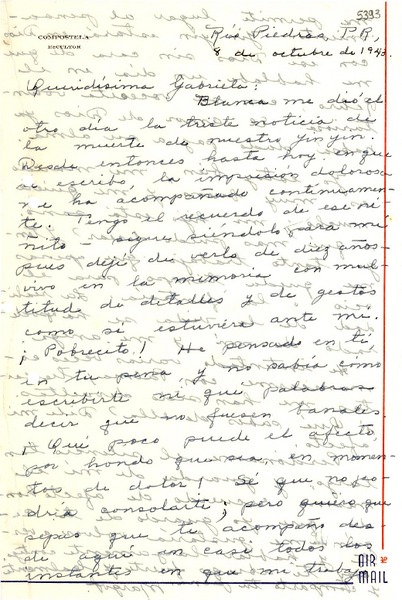 5393
COMPOSTELA
ESCULTOR
Río Piedras, P.R,
8 de octubre de 1943.
Queridísima Gabriela:
Blanca me dió el
otro día la triste noticia de
la muerte de nuestro Yinyin.
Desde entonces hasta hoy en que
te escribo, la impresión dolorosa
me ha acompañado continuamen-
te. Tengo el recuerdo de ese ni-
ñito - sigue siéndolo para mí
pues dejé de verlo de diez años -
vivo en la memoria con mul-
titud de detalles y de gestos
como si estuviera ante mí.
¡Pobrecito! He pensado en ti
en tu pena y no sabía cómo
escribirte ni qué palabras
decir que no fuesen banales
¡Qué poco puede el afecto
por hondo que sea, en momen-
tos de dolor! Sé que no po-
dría consolarte; pero quiero que
sepas que te acompaño des-
de aquí en casi todos los
instantes en que mi trabajo
AIR
MAIL